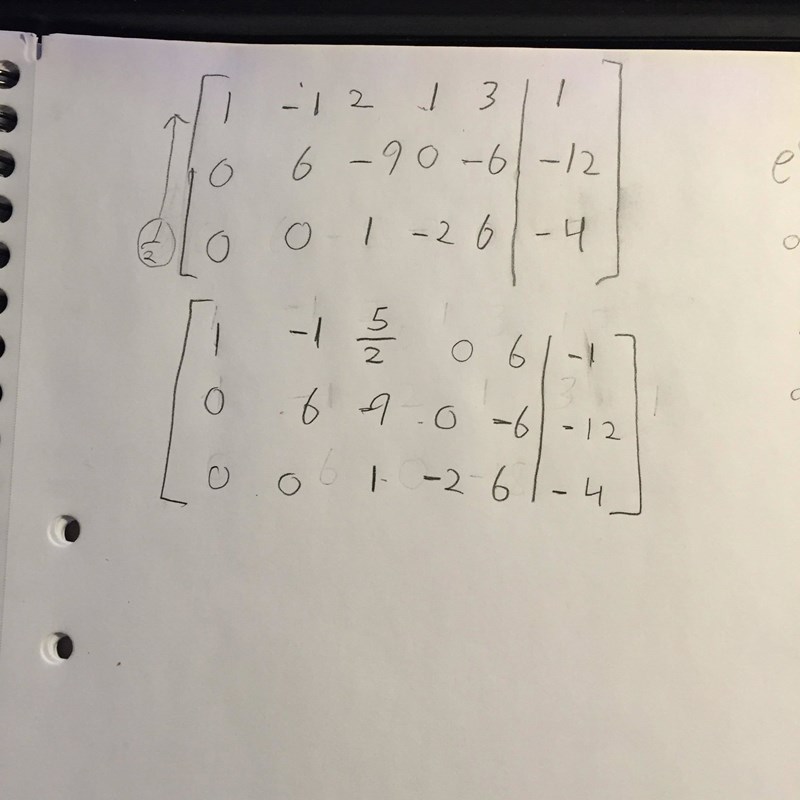 1 -1 2 1 3 | 1
0 6 -9 0 -6 | -12
1/2 0 0 1 -2 6 | -4
1 -1 5/2 0 6 | -1
0 6 -9 0 -6 | -12
0 0 1 -2 6 | -4